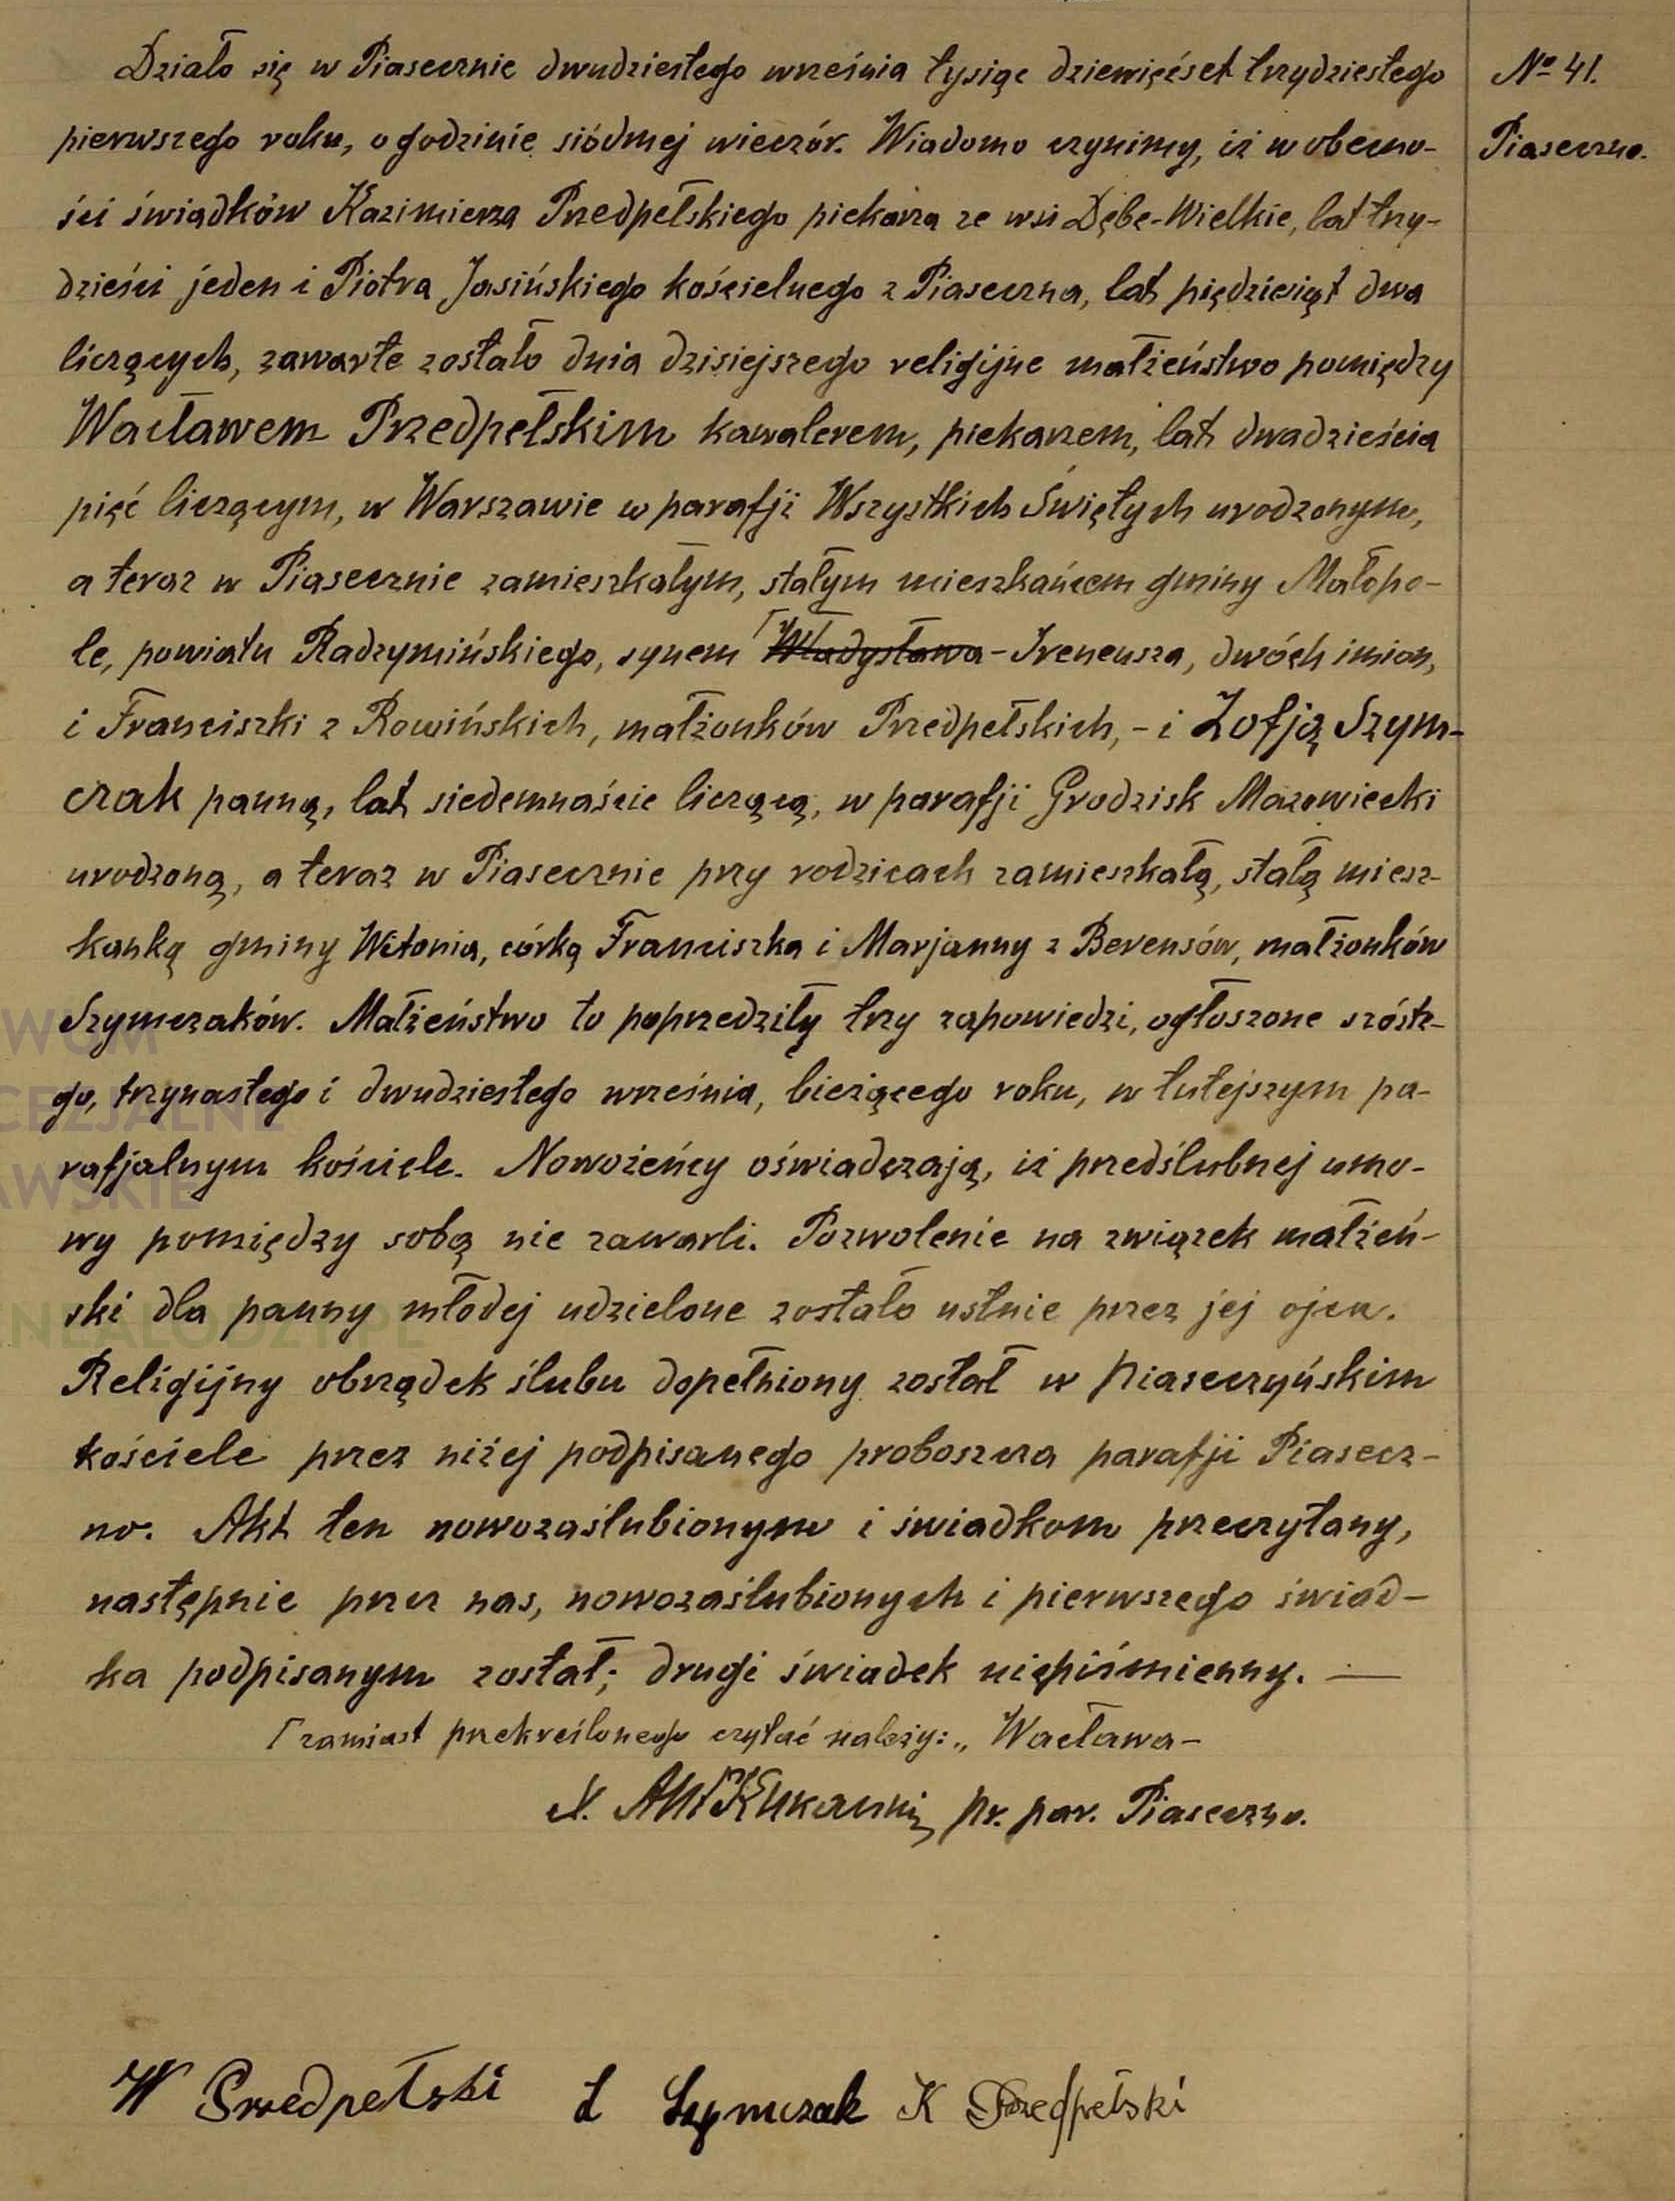 Działo się w Piasecznie dwudziestego września tysiąc dziewięćset trzydziestego
pierwszego roku, o godzinie siódmej wieczór. Wiadomo czynimy, iż w obecno-
ści świadków Kazimierza Przedpełskiego piekarza ze wsi Dębe-Wielkie, lat trzy-
dzieści jeden i Piotra Jasińskiego kościelnego z Piaseczna, lat piędziesiąt dwa
liczących, zawarte zostało dnia dzisiejszego religijne małżeństwo pomiędzy
Wacławem Przedpełskim kawalerem, piekarzem, lat dwadzieścia
pięć liczącym, w Warszawie w parafji Wszystkich Świętych urodzonym,
a teraz w Piasecznie zamieszkałym, stałym mieszkańcem gminy Małopo-
le, powiatu Radzymińskiego, synem ⌈Władysława - Ireneusza, dwóch imion,
i Franciszki z Rowińskich, małżonków Przedpełskich, - i Zofją Szym-
czak panną, lat siedemnaście liczącą, w parafji Grodzisk Mazowiecki
urodzoną, a teraz w Piasecznie przy rodzicach zamieszkałą, stałą miesz-
kanką gminy Witonia, córką Franciszka i Marjanny z Berensów, małżonków
Szymczaków. Małżeństwo to poprzedziły trzy zapowiedzi, ogłoszone szóste-
go, trzynastego i dwudziestego września, bieżącego roku, w tutejszym pa-
rafjalnym kościele. Nowożeńcy oświadczają, iż przedślubnej umo-
wy pomiędzy sobą nie zawarli. Pozwolenie na związek małżeń-
ski dla panny młodej udzielone zostało ustnie przez jej ojca.
Religijny obrządek ślubu dopełniony został w Piaseczyńskim
kościele przez niżej podpisanego proboszcza parafji Piasecz-
no. Akt ten nowozaślubionym i świadkom przeczytany,
następnie przez nas, nowozaślubionych i pierwszego świad-
ka podpisanym został; drugi świadek niepiśmienny. —
⌈ zamiast przekreślonego czytać należy: „ Wacława -
pr. par. Piaseczno.
W Przedpełski Z Szymczak K Przedpełski
№ 41.
Piaseczno.